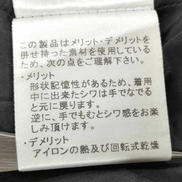 この製品はメリット・デメリットを
併せ持った素材を使用している
ため、次の点をご理解下さい。
・メリット
形状記憶性があるため、着用
中に出来たシワは手でなでる
と元に戻ります。
逆に、手でもむとシワ感をお楽
しみ頂けます。
・デメリット
アイロンの熱及び回転式乾燥